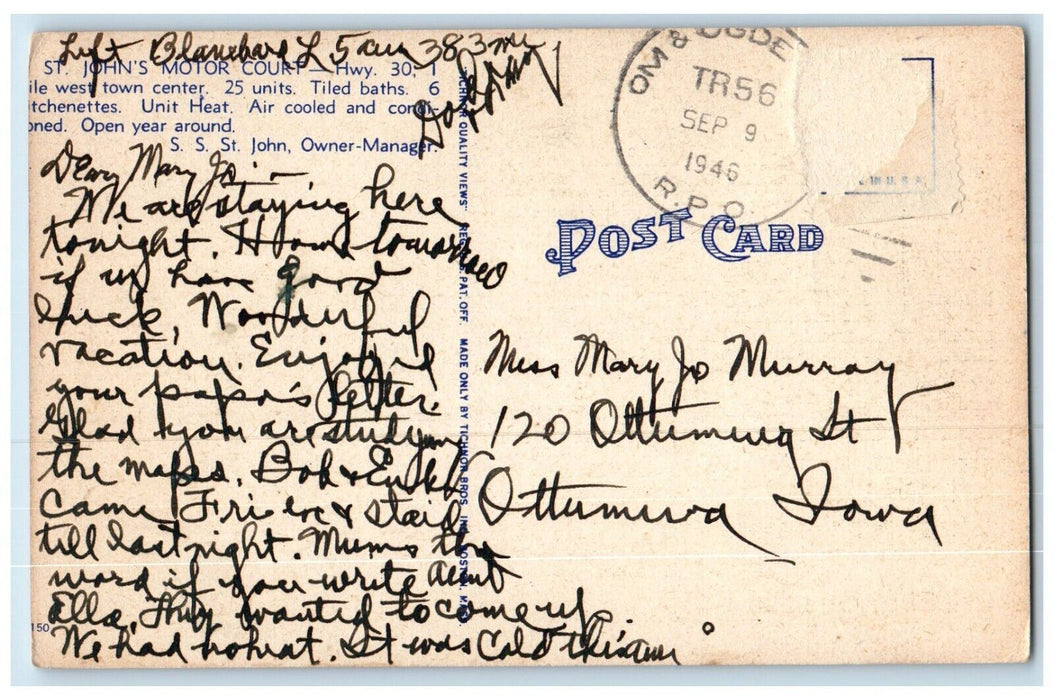 Left Blanchard L 5 am 383 mi
ST. JOHN'S MOTOR COURT — Hwy. 30, 1
ile west town center. 25 units. Tiled baths. 6
itchenettes. Unit Heat. Air cooled and condi-
oned. Open year around.
S. S. St. John, Owner-Manager.
Dear Mary Jo —
We are staying here
tonight. Home tomorrow
if we have good
luck, Wonderful
vacation. Enjoyed
your papa's letter.
Glad you are studying
the maps. Bob &
Came Fri eve & staid
till last night. Mums the
word if you write about
Ella. They wanted to come up.
We had no heat. It was Cold this am
150
"TICHNOR QUALITY VIEWS" REG. U.S. PAT. OFF. MADE ONLY BY TICHNOR BROS. INC., BOSTON, MASS.
OM & OGDEN
TR56
SEP 9
1946
R.P.O.
IN U.S.A.
POST CARD
Miss Mary Jo Murray
120 Ottumwa St
Ottumwa Iowa